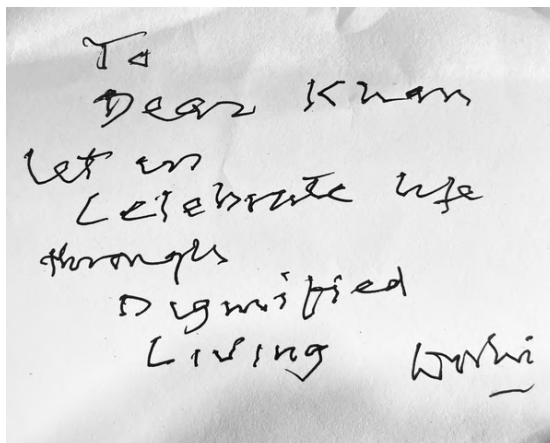 To
Dear Khan
Let us
Celebrate life
through
Dignified
Living